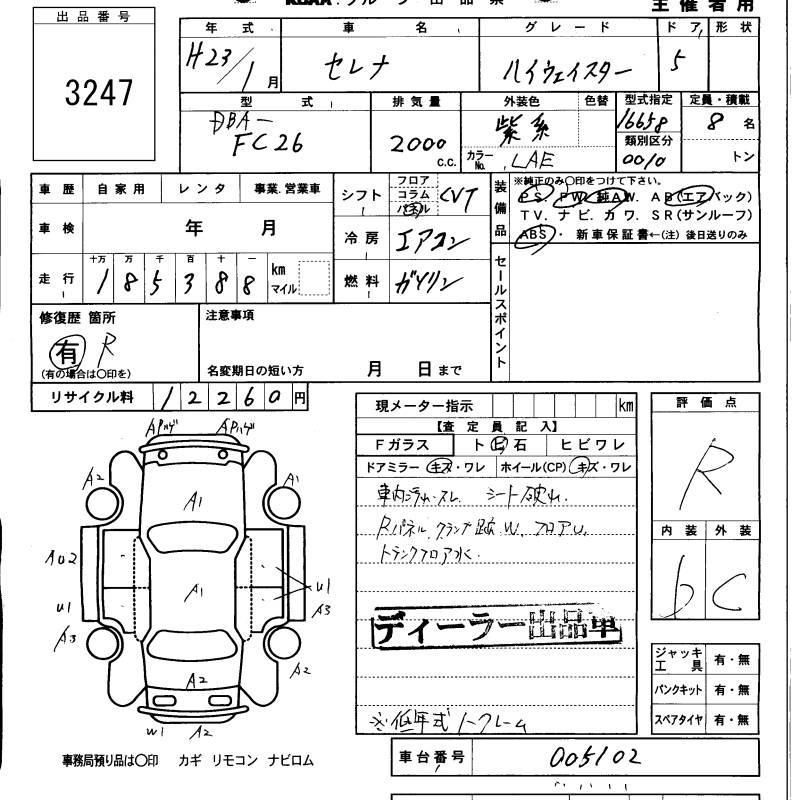 出品番号
3247
主催者用
年式 車名 グレード ドア 形状
H23/1月 セレナ ハイウェイスター 5
型式 排気量 外装色 色替 型式指定 定員・積載
DBA-
FC26
2000 c.c.
紫系
カラーNo. LAE
16658
類別区分
0010
8名
トン
車歴 自家用 レンタ 事業.営業車
車検 年 月
走行 十万 万 千 百 十 一
185388 km マイル
シフト フロア コラム パネル CVT
冷房 エアコン
燃料 ガソリン
装備品
※純正のみ〇印をつけて下さい。
PS. PW. 純AW. AB(エアバック)
TV. ナビ. カワ. SR(サンルーフ)
ABS・ 新車保証書←(注) 後日送りのみ
セールスポイント
修復歴 箇所
有 R
(有の場合は〇印を)
注意事項
名変期日の短い方 月 日まで
リサイクル料 12260円
現メーター指示 km
【査定員記入】
Fガラス ト ビ 石 ヒビワレ
ドアミラー キズ・ワレ ホイール(CP) キズ・ワレ
車内汚れ・スレ. シート破れ.
Rパネル, クランプ跡W, フロアU,
トランクフロア水.
ディーラー出品車
※低年式
評価点
R
内装 外装
b C
ジャッキ 工具 有・無
パンクキット 有・無
スペアタイヤ 有・無
A2
A1
A1
AU2
A1
U1
U1
A3
A3
A2
A2
W1 A2
事務局預り品は〇印 カギ リモコン ナビロム
車台番号 005102